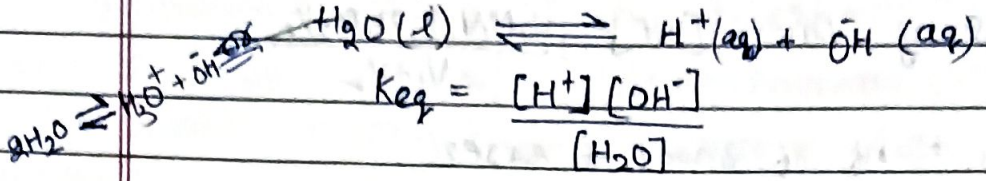 H2O (l) ⇌ H⁺(aq) + ŌH (aq)
2H2O ⇌ H3O⁺ + ŌH
Keq = [H⁺] [OH⁻] / [H2O]